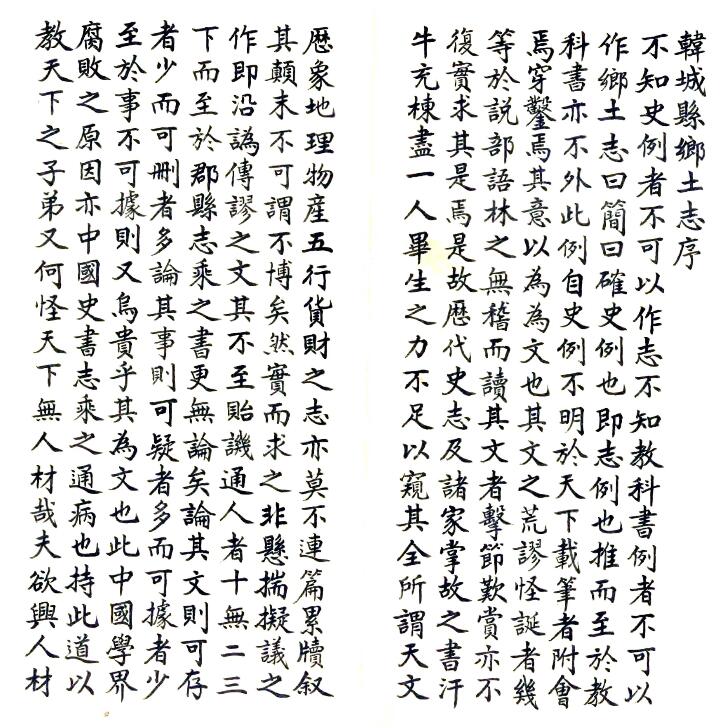 韓城縣鄉土志序
不知史例者不可以作志不知教科書例者不可以
作鄉土志曰簡曰確史例也即志例也推而至於教
科書亦不外此例自史例不明於天下載筆者附會
焉穿鑿焉其意以為為文也其文之荒謬怪誕者幾
等於説部語林之無稽而讀其文者擊節歎賞亦不
復實求其是焉是故歷代史志及諸家掌故之書汗
牛充棟盡一人畢生之力不足以窺其全所謂天文
歷象地理物產五行貨財之志亦莫不連篇累牘叙
其顛末不可謂不博矣然實而求之非懸揣擬議之
作即沿譌傳謬之文其不至貽譏通人者十無二三
下而至於郡縣志乘之書更無論矣論其文則可存
者少而可刪者多論其事則可疑者多而可據者少
至於事不可據則又烏貴乎其為文也此中國學界
腐敗之原因亦中國史書志乘之通病也持此道以
教天下之子弟又何怪天下無人材哉夫欲興人材